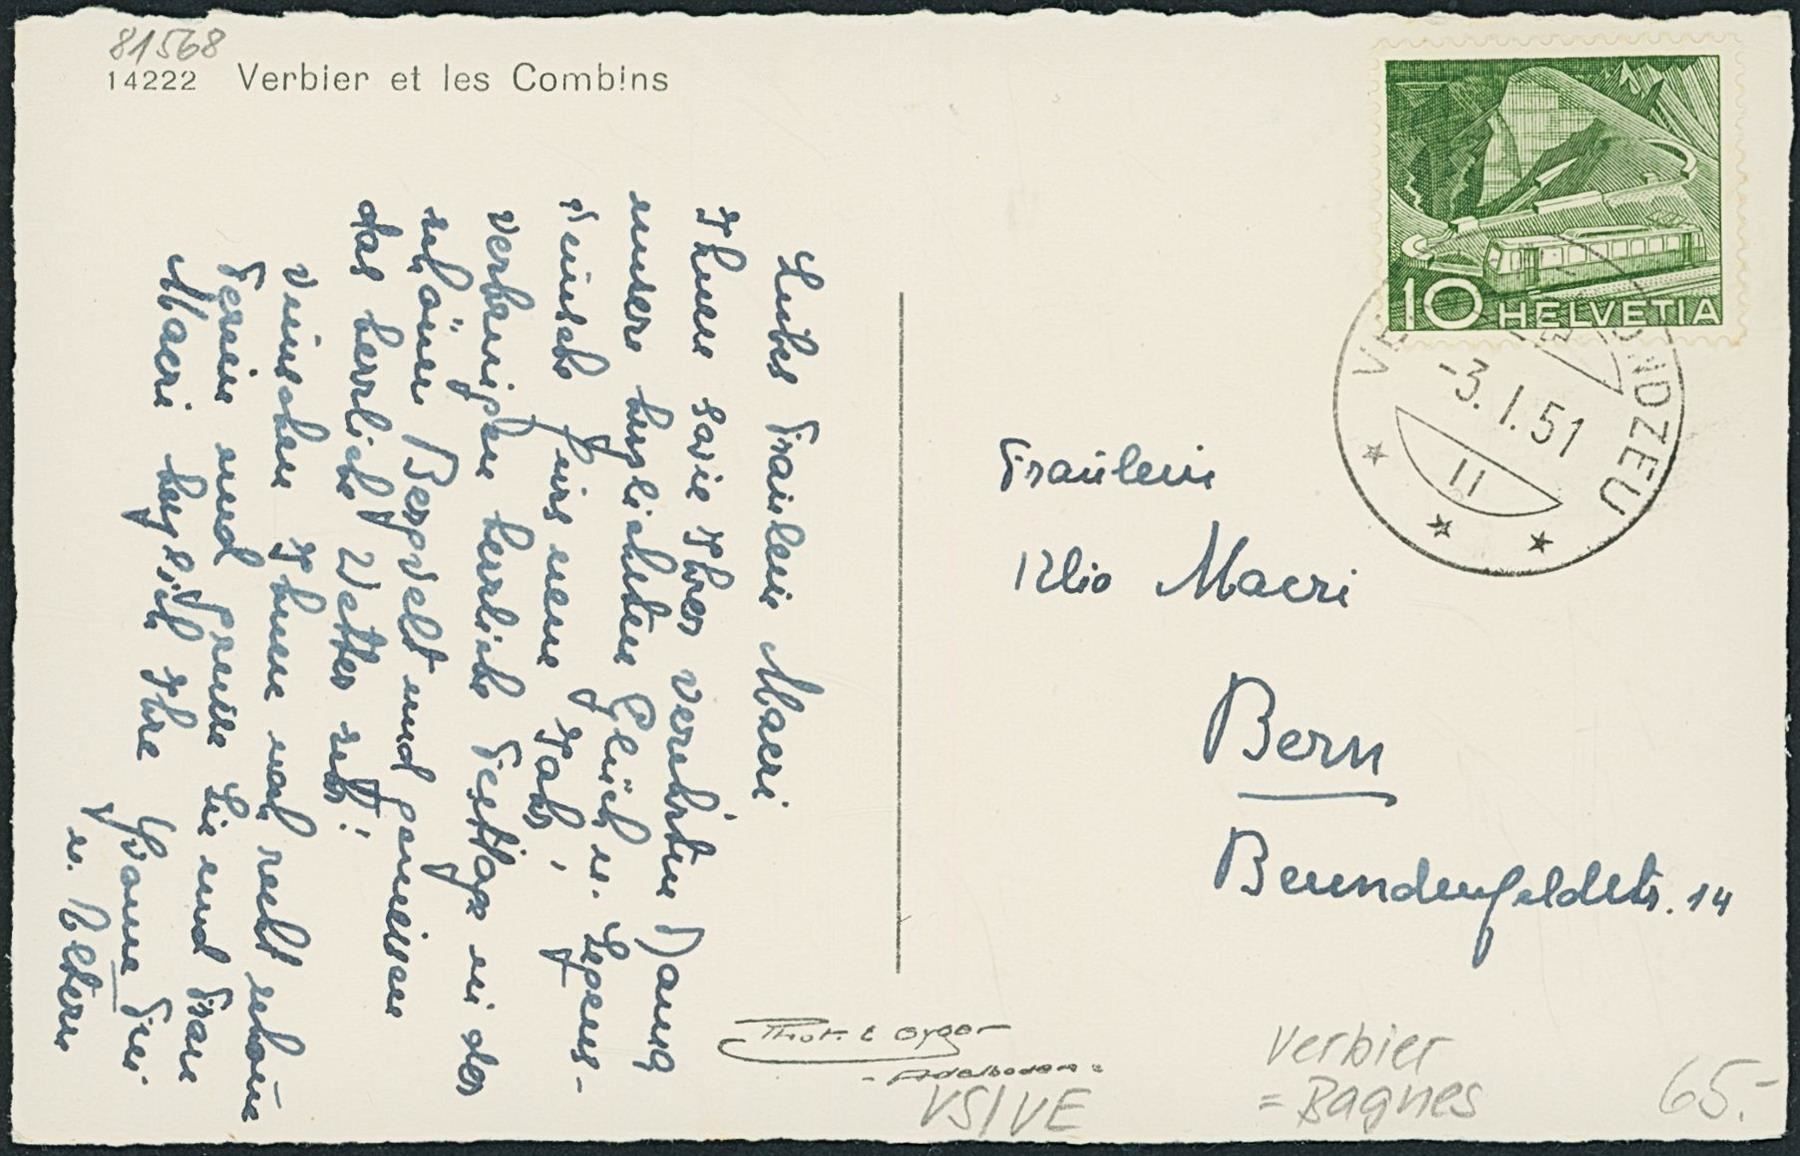 81568
14222 Verbier et les Combins
10 HELVETIA
VE ONDZEU
-3.I.51
11
Liebes Fräulein Macri
Ihnen sowie Ihrer verehrten Mama
unsere herzlichsten Glück u. Segens-
wünsche fürs neue Jahr,
verbringen herrliche Festtage in der
schönen Bergwelt und geniessen
das herrliche Wetter sehr!
Wünschen Ihnen noch recht schöne
Ferien und grüsse Sie und Frau
Macri herzlich Ihre Yvonne Frei
u. Eltern
Fräulein
Klio Macri
Bern
Beundenfeldstr. 14
Phot. E Gyger
- Adelboden -
VS/VE
Verbier
= Bagnes
65.-